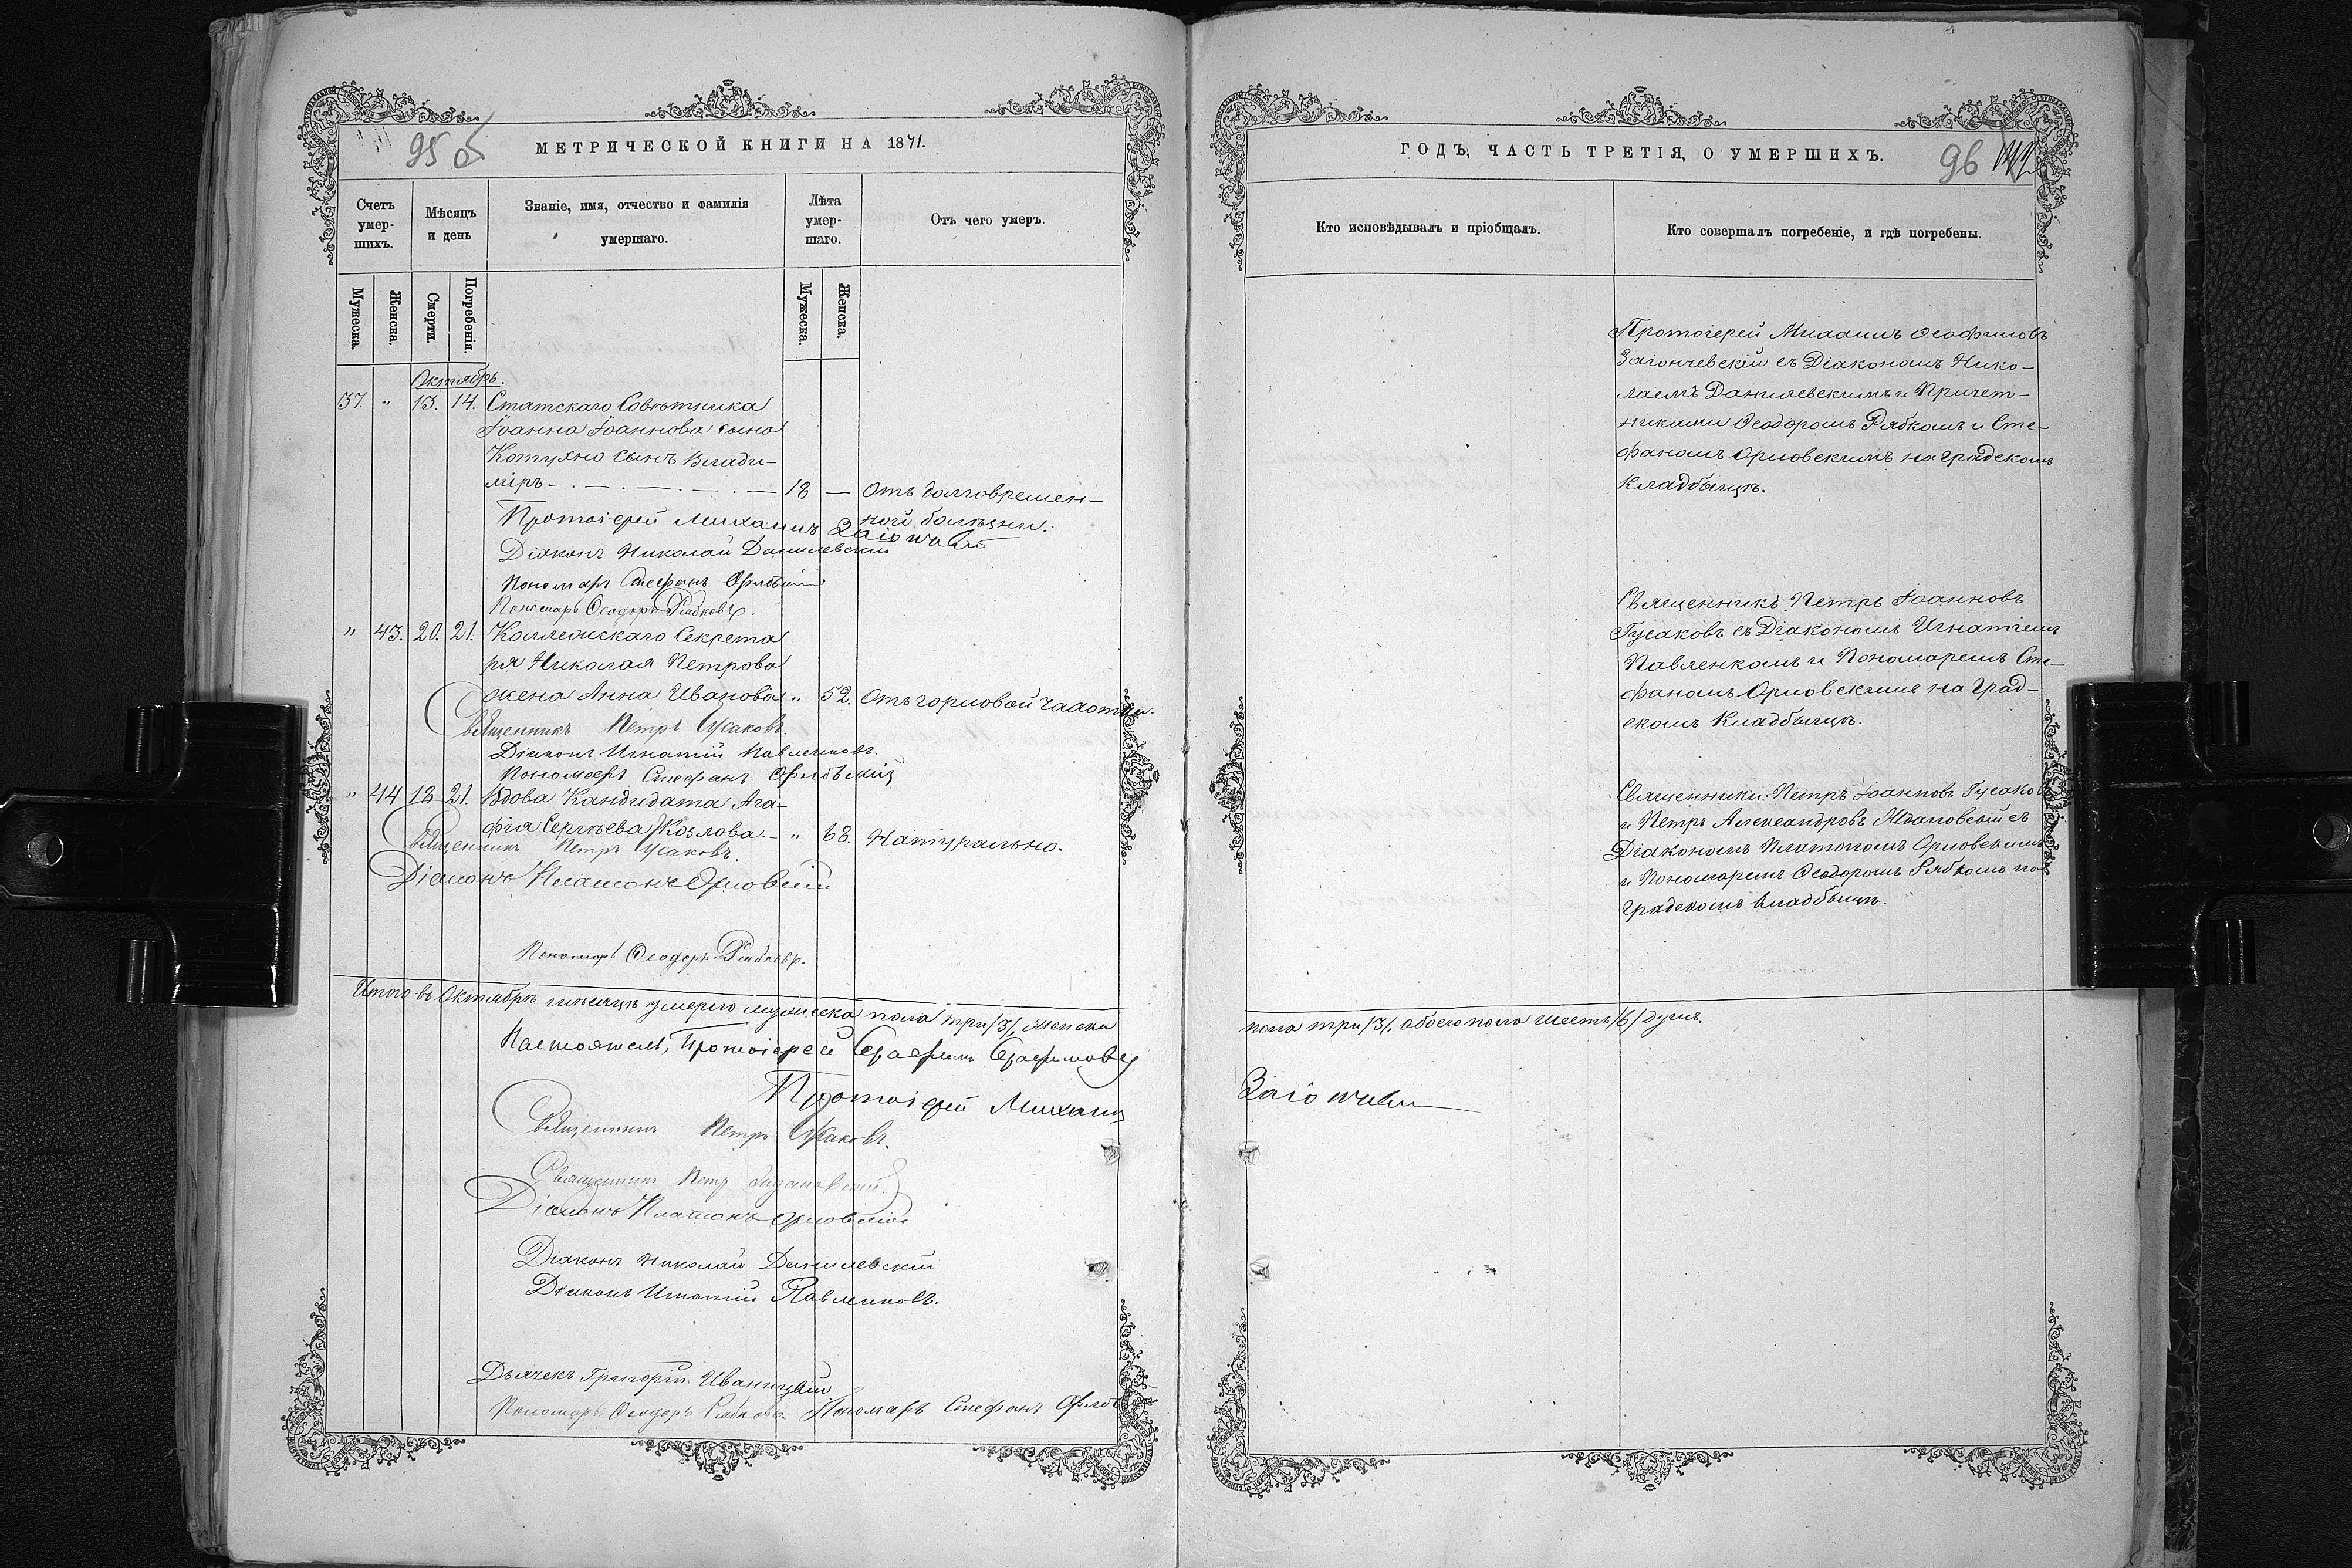 95 об
МЕТРИЧЕСКОЙ КНИГИ НА 1871.
Счетъ умер-шихъ.
Мѣсяцъ и день
Званіе, имя, отчество и фамилія умершаго.
Лѣта умер-шаго.
Отъ чего умеръ.
Мужеска.
Женска.
Смерти.
Погребенія.
Мужеска.
Женска.
Октябрь.
37. " 13. 14. Статскаго Совѣтника
Іоанна Іоаннова сына
Котухно сынъ Влади-
міръ - 18 - Отъ долговремен-
ной болѣзни.
Протоіерей Михаилъ
Діаконъ Николай Данилевскій
Пономарь Стефанъ Орловскій
Пономарь Ѳеодоръ Рябковъ.
" 43. 20. 21. Коллежскаго Секрета
ря Николая Петрова
жена Анна Иванова " 52. Отъ горловой чахотки.
Священникъ Петръ Гусаковъ.
Діаконъ Игнатій Павленковъ.
Пономарь Стефанъ Орловскій
" 44 18 21. Вдова Кандидата Ага-
фія Сергѣева Козлова. - " 68. Натурально.
Священникъ Петръ Гусаковъ.
Діаконъ Платонъ Орловскій
Пономарь Ѳеодоръ Рябковъ.
Итого въ Октябрѣ мѣсяцѣ умерло мужеска пола три /3/, женска
Настоятель, Протоіерей Серафимъ Серафимовъ
Протоіерей Михаилъ
Священникъ Петръ Гусаковъ.
Священникъ Петръ
Діаконъ Платонъ Орловскій
Діаконъ Николай Данилевскій
Діаконъ Игнатій Павленковъ.
Дьячекъ Григорій Иваницкій
Пономарь Ѳеодоръ Рябковъ. Пономарь Стефанъ Орловскій
ГОДЪ, ЧАСТЬ ТРЕТІЯ, О УМЕРШИХЪ.
96
Кто исповѣдывалъ и пріобщалъ.
Кто совершалъ погребеніе, и гдѣ погребены.
Протоіерей Михаилъ Ѳеофиловъ
Заіончевскій съ Діакономъ Нико-
лаемъ Данилевскимъ и Причет-
никами Ѳеодоромъ Рябкомъ и Сте-
фаномъ Орловскимъ на градскомъ
кладбищѣ.
Священникъ Петръ Іоанновъ
Гусаковъ съ Діакономъ Игнатіемъ
Павленкомъ и Пономаремъ Сте-
фаномъ Орловскимъ на Град-
скомъ Кладбищѣ.
Священники: Петръ Іоанновъ Гусаковъ
и Петръ Александровъ съ
Діакономъ Платономъ Орловскимъ
и Пономаремъ Ѳеодоромъ Рябкомъ на
градскомъ кладбищѣ.
пола три /3/, обоего пола шесть /6/ душъ.